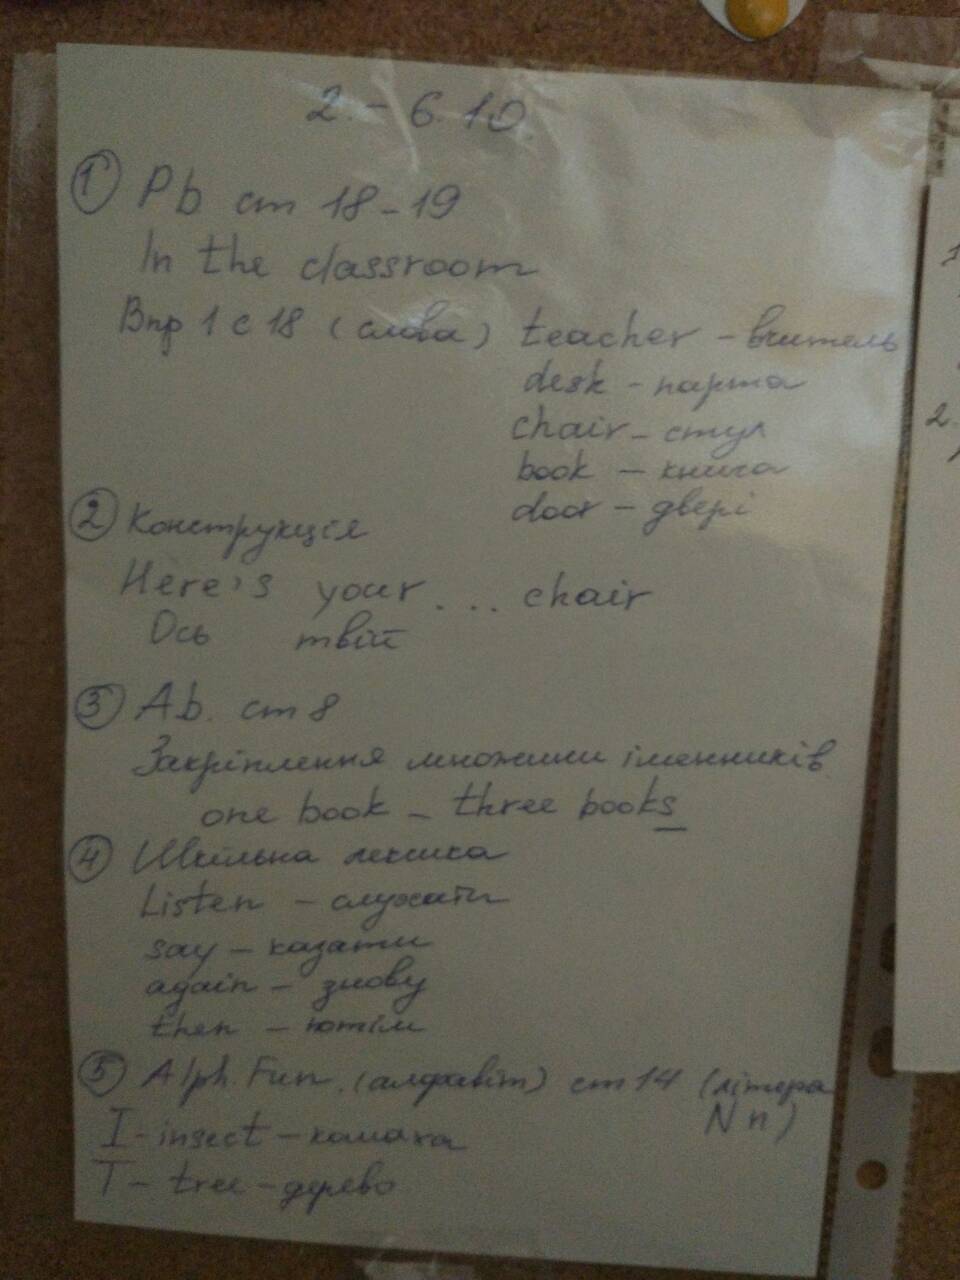 2. - 6.10.
① Pb ст 18-19
In the classroom
Впр 1 с 18 (слова) teacher - вчитель
desk - парта
chair - стул
book - книга
door - двері
② Конструкція
Here's your ... chair
Ось твій
③ Ab. ст 8
Закріплення множини іменників
one book - three books
④ Шкільна лексика
Listen - слухати
say - казати
again - знову
then - потім
⑤ Alph. Fun. (алфавіт) ст 14 (літера
N n)
I - insect - комаха
T - tree - дерево
2.